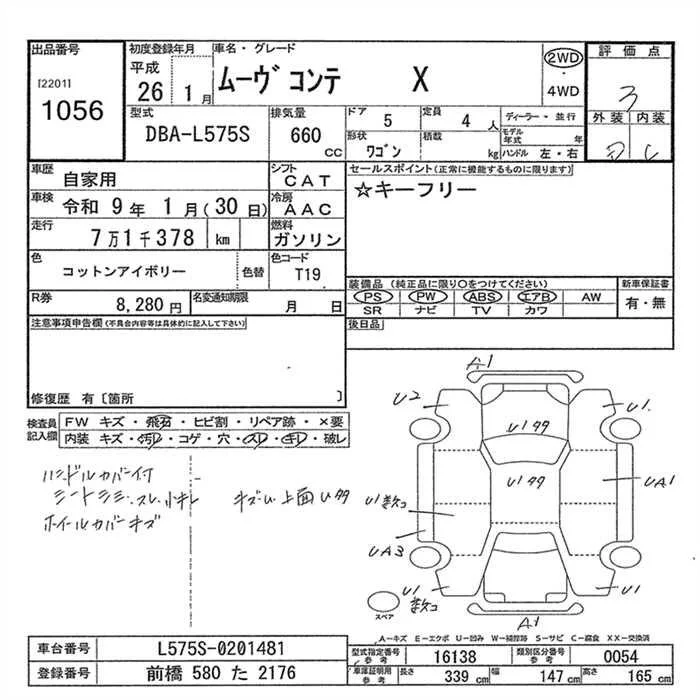 出品番号
[2201]
1056
初度登録年月
平成
26 1月
車名・グレード
ムーヴ コンテ X
2WD
4WD
評価点
3
外装 内装
D C
型式
DBA-L575S
排気量
660
CC
ドア
5
定員
4 人
ディーラー・並行
形状
ワゴン
積載
kg
モデル年式 年
ハンドル 左・右
車歴
自家用
シフト
CAT
車検
令和 9年 1月(30日)
冷房
AAC
走行
7万1千378 km
燃料
ガソリン
色
コットンアイボリー
色替
色コード
T19
R券
8,280円
名変通知期限
月 日
セールスポイント(正常に機能するものに限ります)
☆キーフリー
装備品(純正品に限り○をつけてください)
PS PW ABS エアB AW
SR ナビ TV カワ
新車保証書
有・無
後日品
注意事項申告欄(不具合内容等は具体的に記入して下さい)
修復歴 有〔箇所 〕
検査員記入欄
FW キズ・飛石・ヒビ割・リペア跡・×要
内装 キズ・汚レ・コゲ・穴・スレ・キレ・破レ
ハンドルカバー付
シートシミ・スレ・小キレ
キズ・U 上面Uタタ
ホイールカバーキズ
A1
U2
U1
U1タタ
U1タタ
UA1
U1数コ
UA3
U1
数コ
U1
A1
スペア
A-キズ E-エクボ U-凹み W-補修跡 S-サビ C-腐食 XX-交換済
車台番号
L575S-0201481
登録番号
前橋 580 た 2176
型式指定番号
参考
16138
類別区分番号
参考
0054
車庫証明用
参考
長さ
339 cm
幅
147 cm
高さ
165 cm